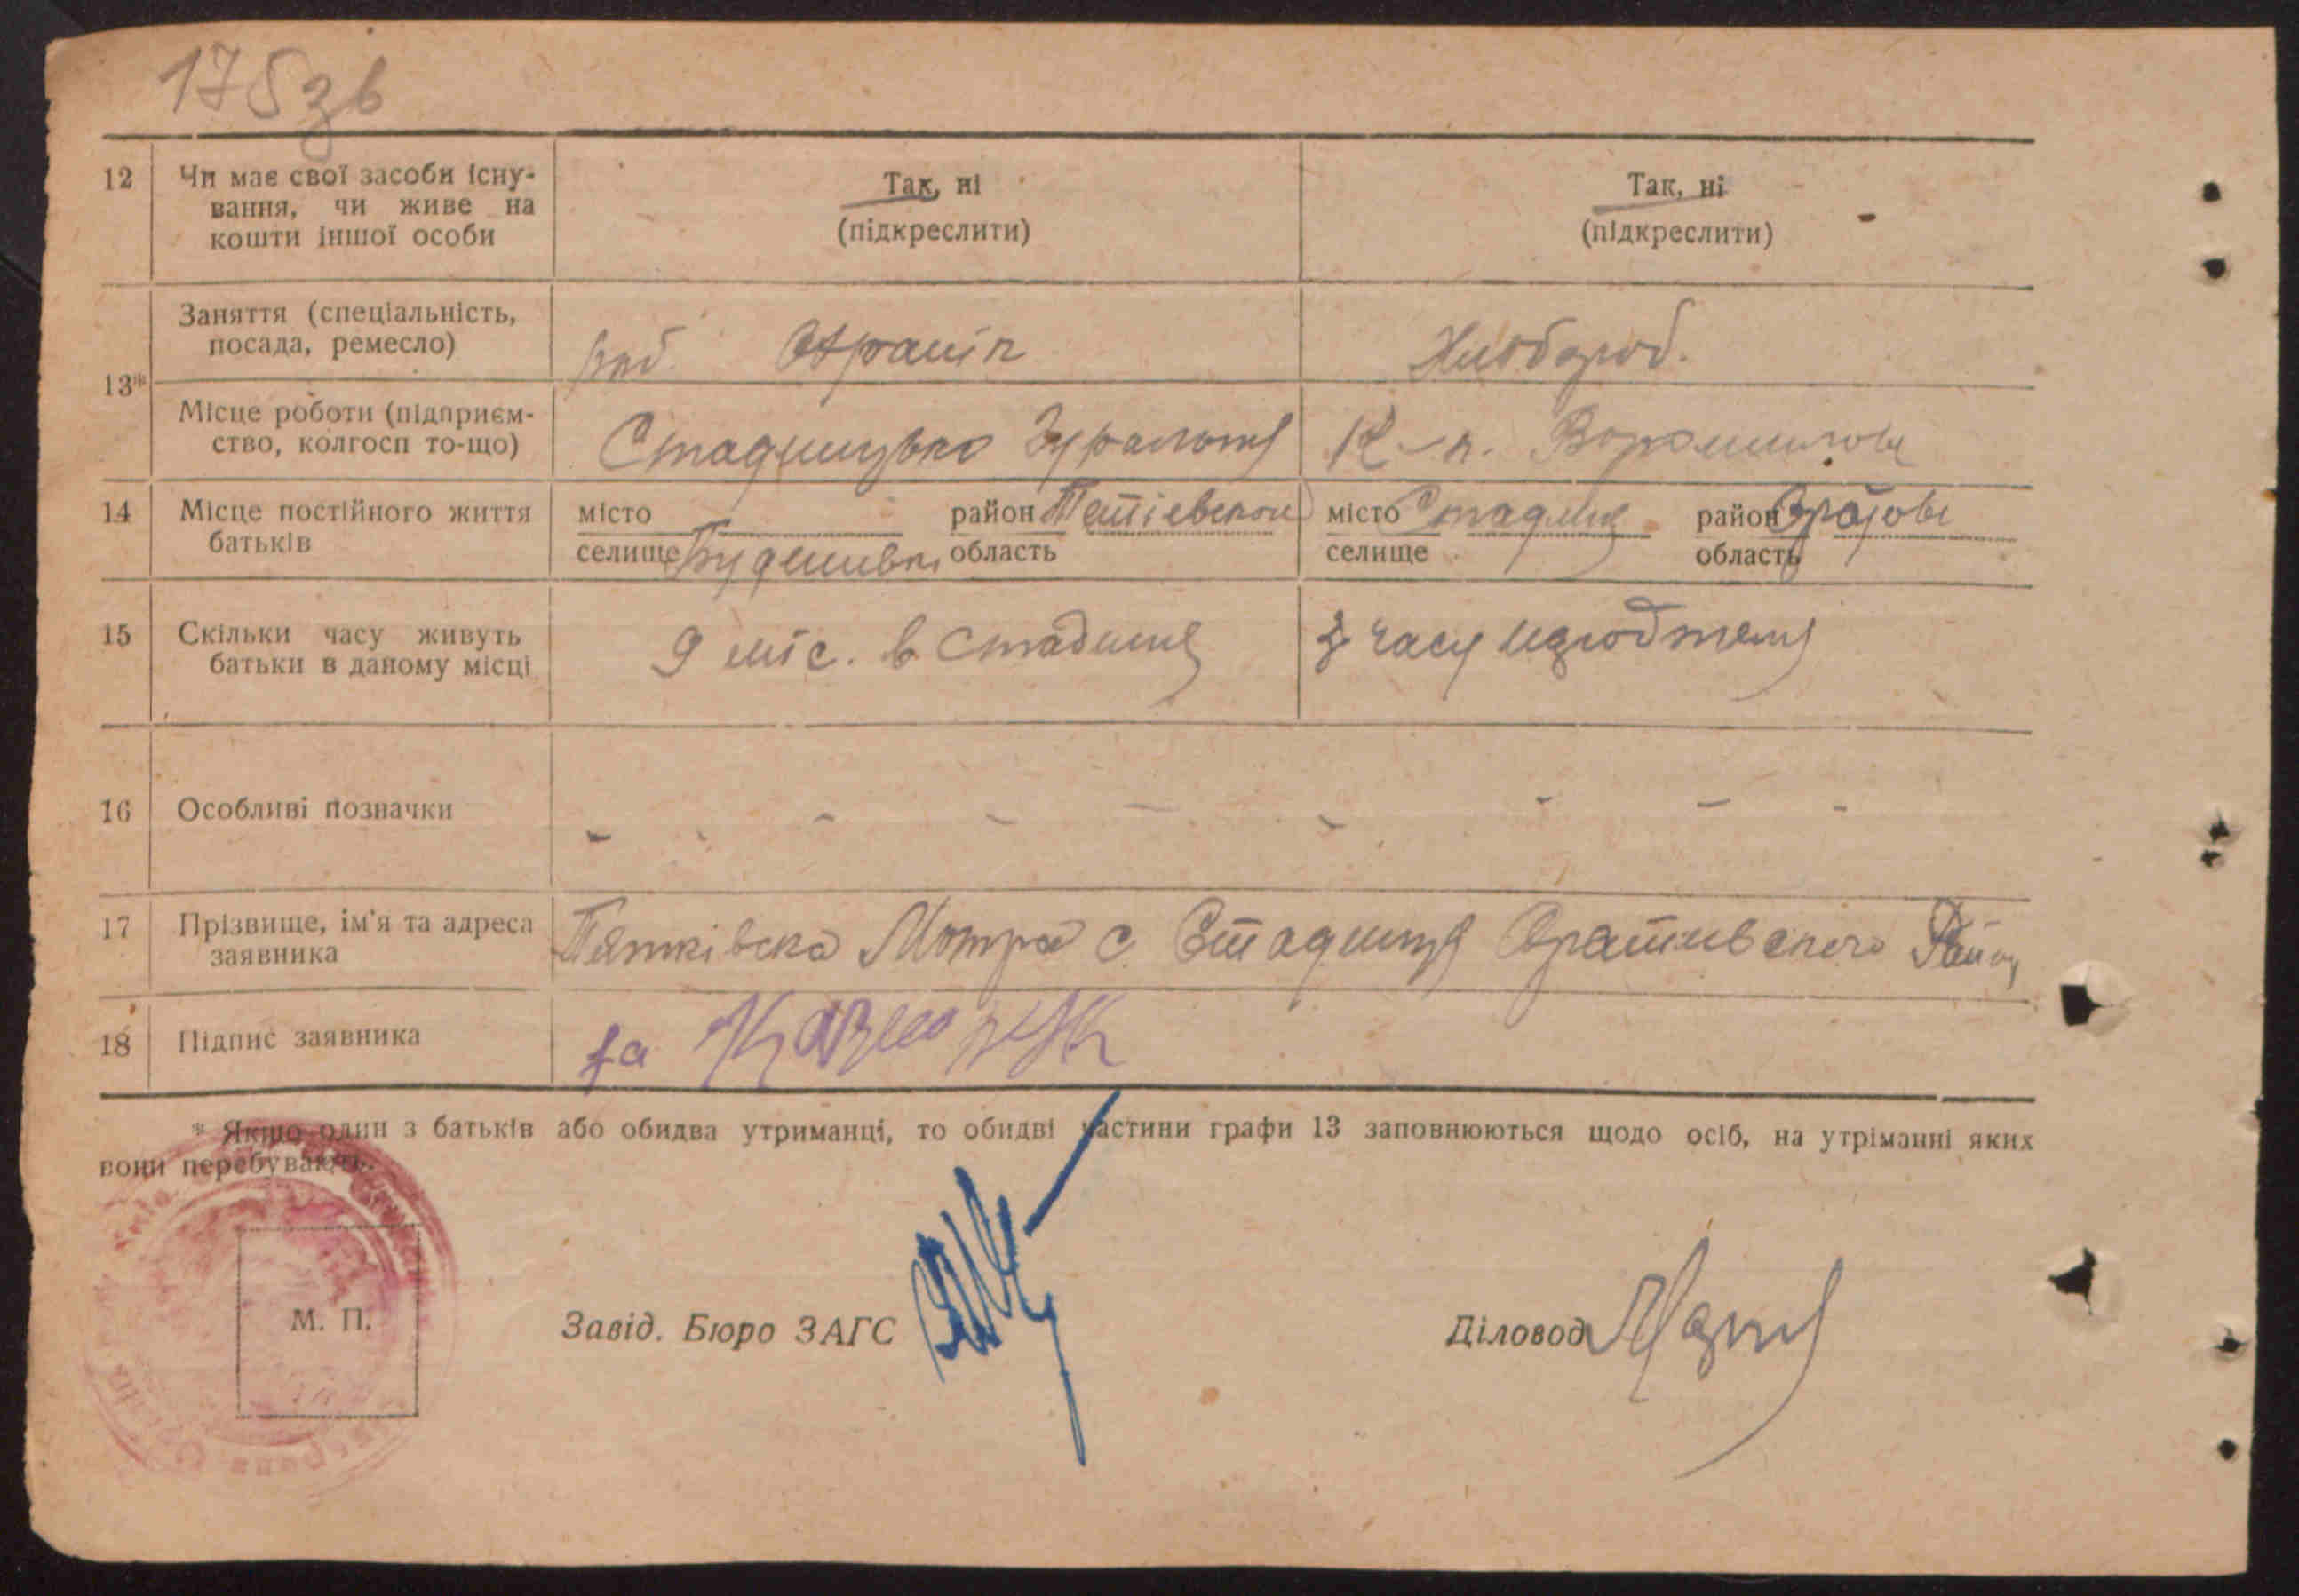 175зв
12 Чи має свої засоби існу- Так, ні Так, ні
вання, чи живе на (підкреслити) (підкреслити)
кошти іншої особи
Заняття (спеціальність,
посада, ремесло) роб. Хлібороб.
13*
Місце роботи (підприєм-
ство, колгосп то-що) К-п. Ворошилова
14 Місце постійного життя місто район Тетіевськой місто Стадниця район
батьків селище область селище область
15 Скільки часу живуть 9 міс. в Стадниці З часу народження
батьки в даному місці
16 Особливі позначки - - - - - - - - -
17 Прізвище, ім'я та адреса Пятківска Мотря с Стадниця Оратівского Району
заявника
18 Підпис заявника за
* Якщо один з батьків або обидва утриманці, то обидві частини графи 13 заповнюються щодо осіб, на утріманні яких
вони перебувають.
М. П. Завід. Бюро ЗАГС Діловод